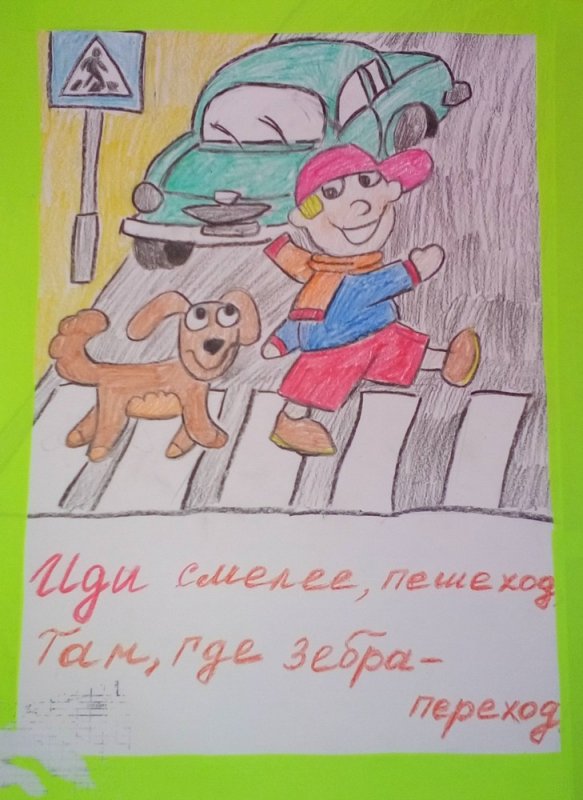 Иди смелее, пешеход,
Там, где зебра-
переход,